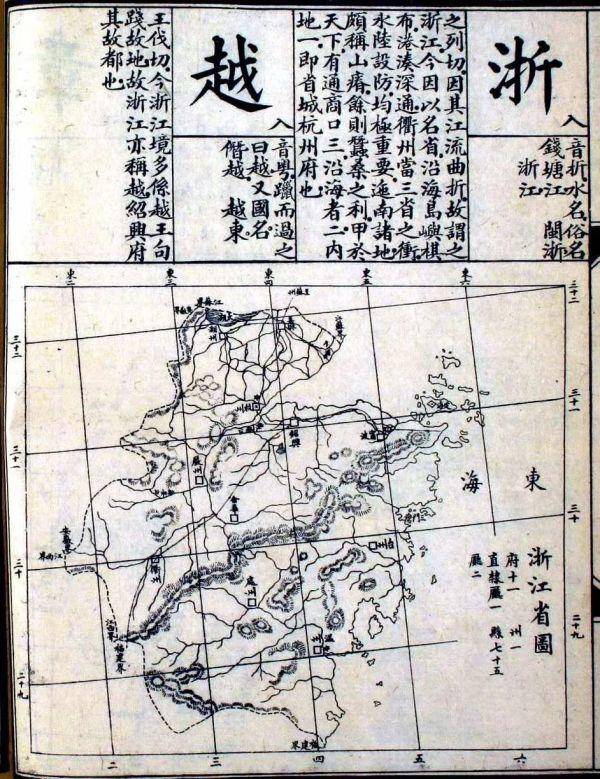 浙
入
音折。水名。俗名
錢塘江。 閩浙
浙江
之列切。因其江流曲折。故謂之
浙江。今因以名省。沿海島嶼棋
布。港湊深通。衢州當三省之衝。
水陸設防。均極重要。迤南諸地。
頗稱山瘠。餘則蠶桑之利。甲於
天下。有通商口三。沿海者二。內
地一。即省城杭州府也
越
入
音粵。躐而過之
曰越。又國名
僭越 越東
王伐切。今浙江境多係越王句
踐故地。故浙江亦稱越。紹興府
其故都也
東六
東五
東四
東三
東二
三十二
三十一
三十
二十九
浙江省圖
府十一 州一
直隸廳一 縣七十五
廳二
東海
江蘇界
湖州
杭州
紹興
寧波
嚴州
金華
衢州
台州
處州
溫州
江西界
福建界
福建界
三十二
三十一
三十
二十九
二
三
四
五
六